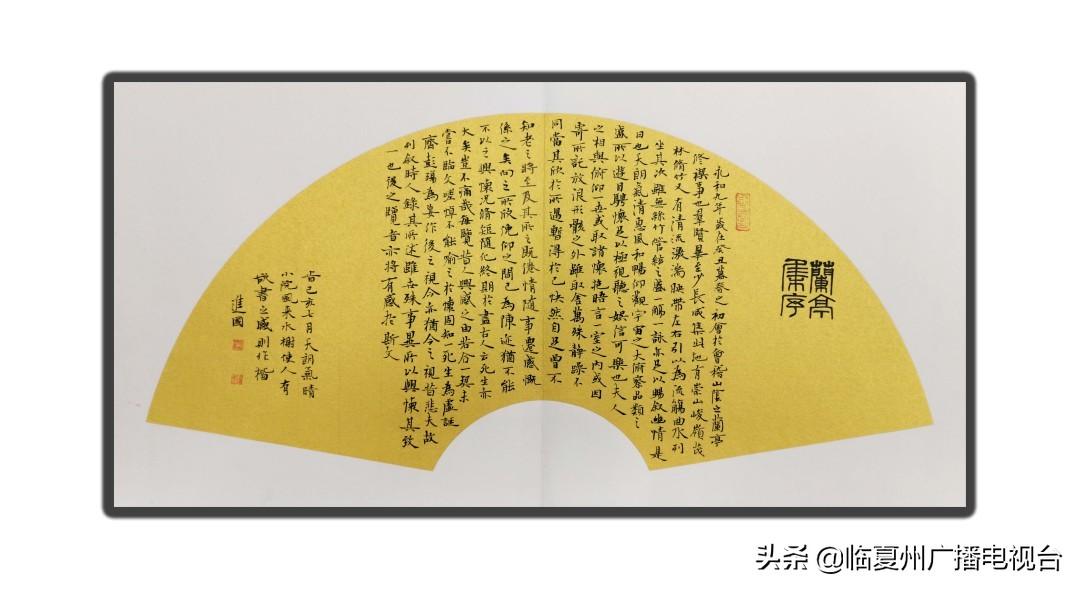 蘭亭
集序
永和九年歲在癸丑暮春之初會於會稽山陰之蘭亭
修禊事也羣賢畢至少長咸集此地有崇山峻嶺茂
林脩竹又有清流激湍映帶左右引以為流觴曲水列
坐其次雖無絲竹管絃之盛一觴一詠亦足以暢叙幽情是
日也天朗氣清惠風和暢仰觀宇宙之大俯察品類之
盛所以遊目騁懷足以極視聽之娛信可樂也夫人
之相與俯仰一世或取諸懷抱晤言一室之内或因
寄所託放浪形骸之外雖取舍萬殊静躁不
同當其欣於所遇暫得於己怏然自足曾不
知老之將至及其所之既倦情隨事遷感慨
係之矣向之所欣俛仰之間已為陳迹猶不能
不以之興懷況脩短隨化終期於盡古人云死生亦
大矣豈不痛哉每覽昔人興感之由若合一契未
嘗不臨文嗟悼不能喻之於懷固知一死生為虛誕
齊彭殤為妄作後之視今亦猶今之視昔悲夫故
列叙時人錄其所述雖世殊事異所以興懷其致
一也後之覽者亦將有感於斯文
旹己亥七月天朗氣晴
小院風來水榭使人有
欲書之感則作楷
進國
头条 @临夏州广播电视台